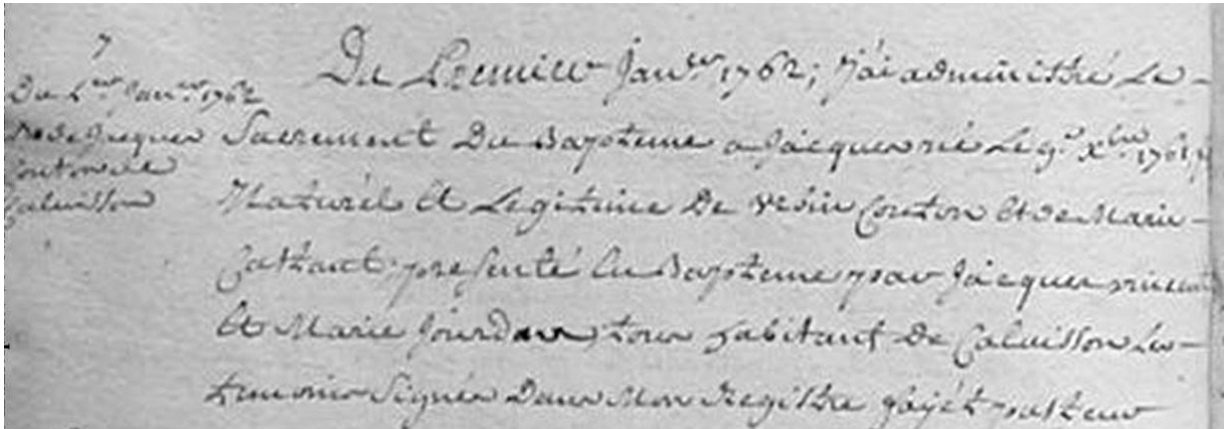 7
Du 1er Janer 1762
Bme de Jacques
Couton de
Calvisson
Du Premier Janer 1762; j'ai administré Le
Sacrement Du Bapteme a Jacques né Le 9e Xbre 1761
Naturel et Legitime De Couton et de Marie
presenté au Bapteme par Jacques vincent
et Marie Jourdan, tous habitant de Calvisson Les
temoins Signés Dans Mon Registre gajét pasteur